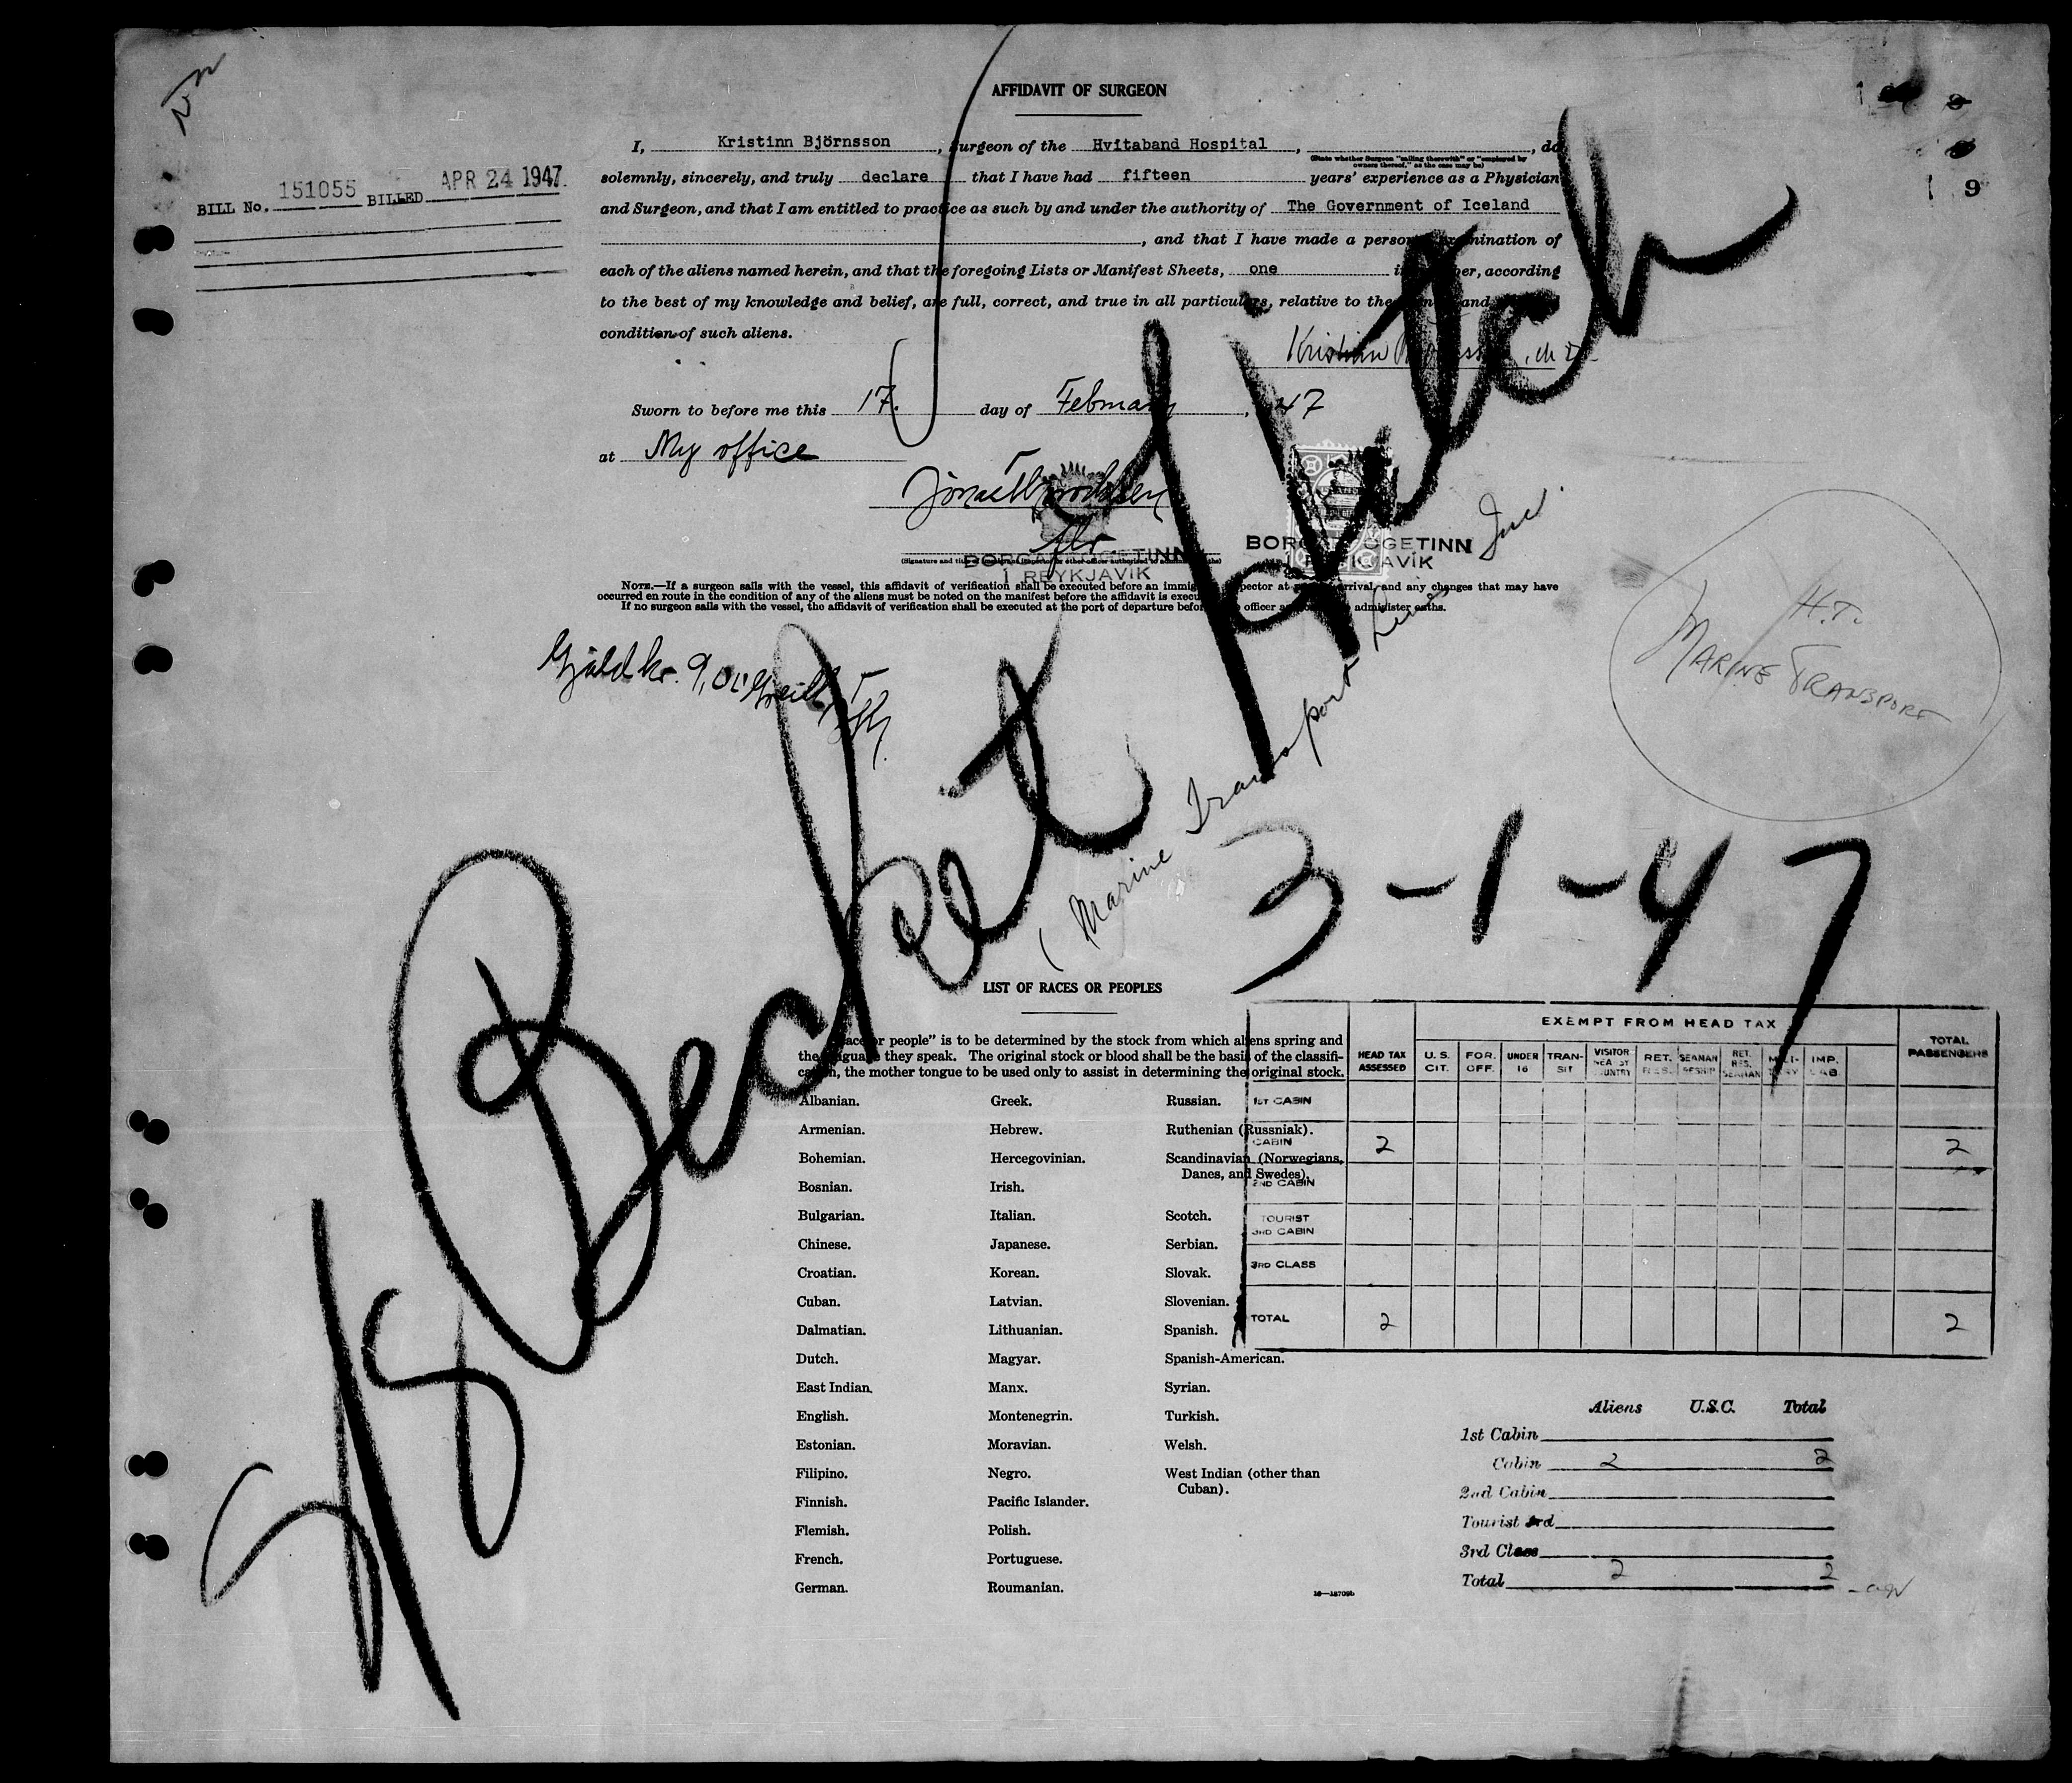 AFFIDAVIT OF SURGEON
I, Kristinn Björnsson, Surgeon of the Hvítaband Hospital, , do
(State whether Surgeon "sailing therewith" or "employed by
owners thereof," as the case may be)
solemnly, sincerely, and truly declare that I have had fifteen years' experience as a Physician
and Surgeon, and that I am entitled to practice as such by and under the authority of The Government of Iceland
, and that I have made a personal examination of
each of the aliens named herein, and that the foregoing Lists or Manifest Sheets, one in number, according
to the best of my knowledge and belief, are full, correct, and true in all particulars, relative to the and
condition of such aliens.
Sworn to before me this 17. day of February, 47
at My office
BILL No. 151055 BILLED APR 24 1947
9
BORGARFOGETINN
Í REYKJAVÍK
BORGARFOGETINN
Í REYKJAVÍK
(Signature and title of immigrant inspector or other officer authorized to administer oaths)
NOTE.—If a surgeon sails with the vessel, this affidavit of verification shall be executed before an immigrant inspector at arrival, and any changes that may have
occurred en route in the condition of any of the aliens must be noted on the manifest before the affidavit is executed.
If no surgeon sails with the vessel, the affidavit of verification shall be executed at the port of departure before officer administer oaths.
H.T.
MARINE TRANSPORT
S/S Becket Hitch
(Marine Transport Lines Inc.
3-1-47
LIST OF RACES OR PEOPLES
"Race or people" is to be determined by the stock from which aliens spring and
the language they speak. The original stock or blood shall be the basis of the classifi-
cation, the mother tongue to be used only to assist in determining the original stock.
Albanian.
Armenian.
Bohemian.
Bosnian.
Bulgarian.
Chinese.
Croatian.
Cuban.
Dalmatian.
Dutch.
East Indian.
English.
Estonian.
Filipino.
Finnish.
Flemish.
French.
German.
Greek.
Hebrew.
Hercegovinian.
Irish.
Italian.
Japanese.
Korean.
Latvian.
Lithuanian.
Magyar.
Manx.
Montenegrin.
Moravian.
Negro.
Pacific Islander.
Polish.
Portuguese.
Roumanian.
Russian.
Ruthenian (Russniak).
Scandinavian (Norwegians,
Danes, and Swedes).
Scotch.
Serbian.
Slovak.
Slovenian.
Spanish.
Spanish-American.
Syrian.
Turkish.
Welsh.
West Indian (other than
Cuban).
16—18709b
EXEMPT FROM HEAD TAX
HEAD TAX ASSESSED
U. S. CIT.
FOR. OFF.
UNDER 16
TRAN-SIT
VISITOR NEAREST COUNTRY
RET. RES.
SEAMAN RESHIP
RET. RES. SEAMAN
MILI-TARY
IMP. LAB.
TOTAL PASSENGERS
1ST CABIN
CABIN 2 2
2ND CABIN
TOURIST
3RD CABIN
3RD CLASS
TOTAL 2 2
Aliens U.S.C. Total
1st Cabin
Cabin 2 2
2nd Cabin
Tourist 3rd
3rd Class
Total 2 2